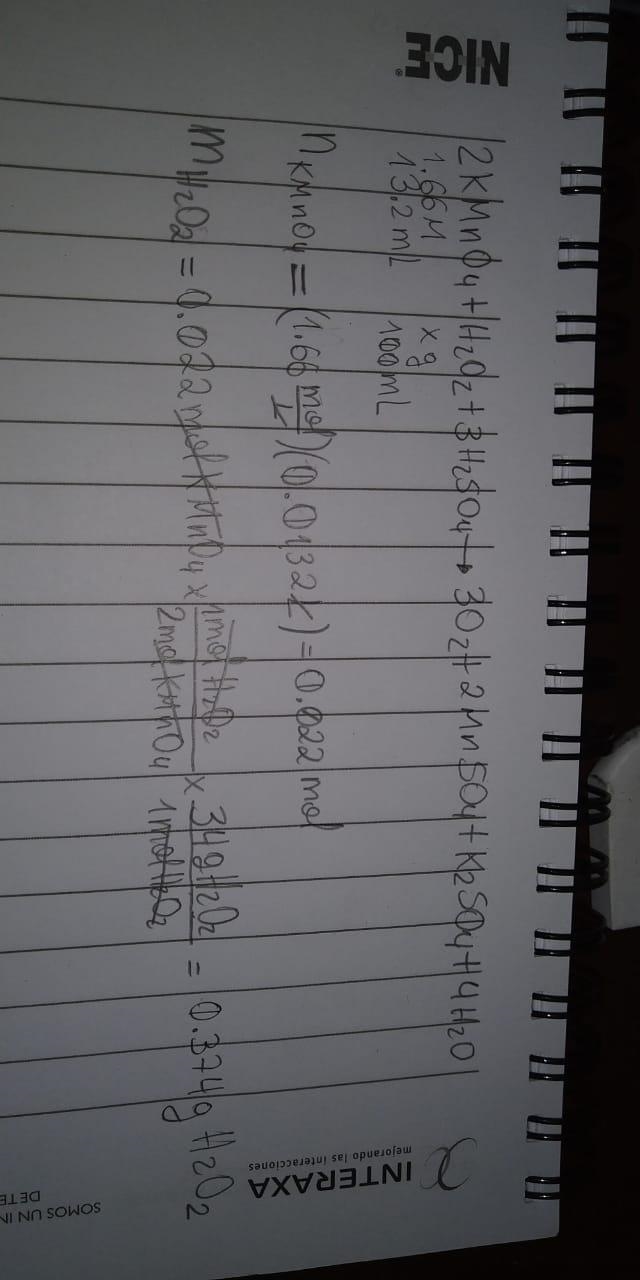 NICE®
2KMnO4 + H2O2 + 3H2SO4 → 3O2 + 2MnSO4 + K2SO4 + 4H2O
1.66M x g
13.2 ml 100 mL
nKMnO4 = (1.66 mol/L)(0.0132 L) = 0.022 mol
mH2O2 = 0.022 mol KMnO4 x 1 mol H2O2/2 mol KMnO4 x 34 g H2O2/1 mol H2O2 = 0.374 g H2O2
INTERAXA
mejorando las interacciones
SOMOS UN IN
DE TE